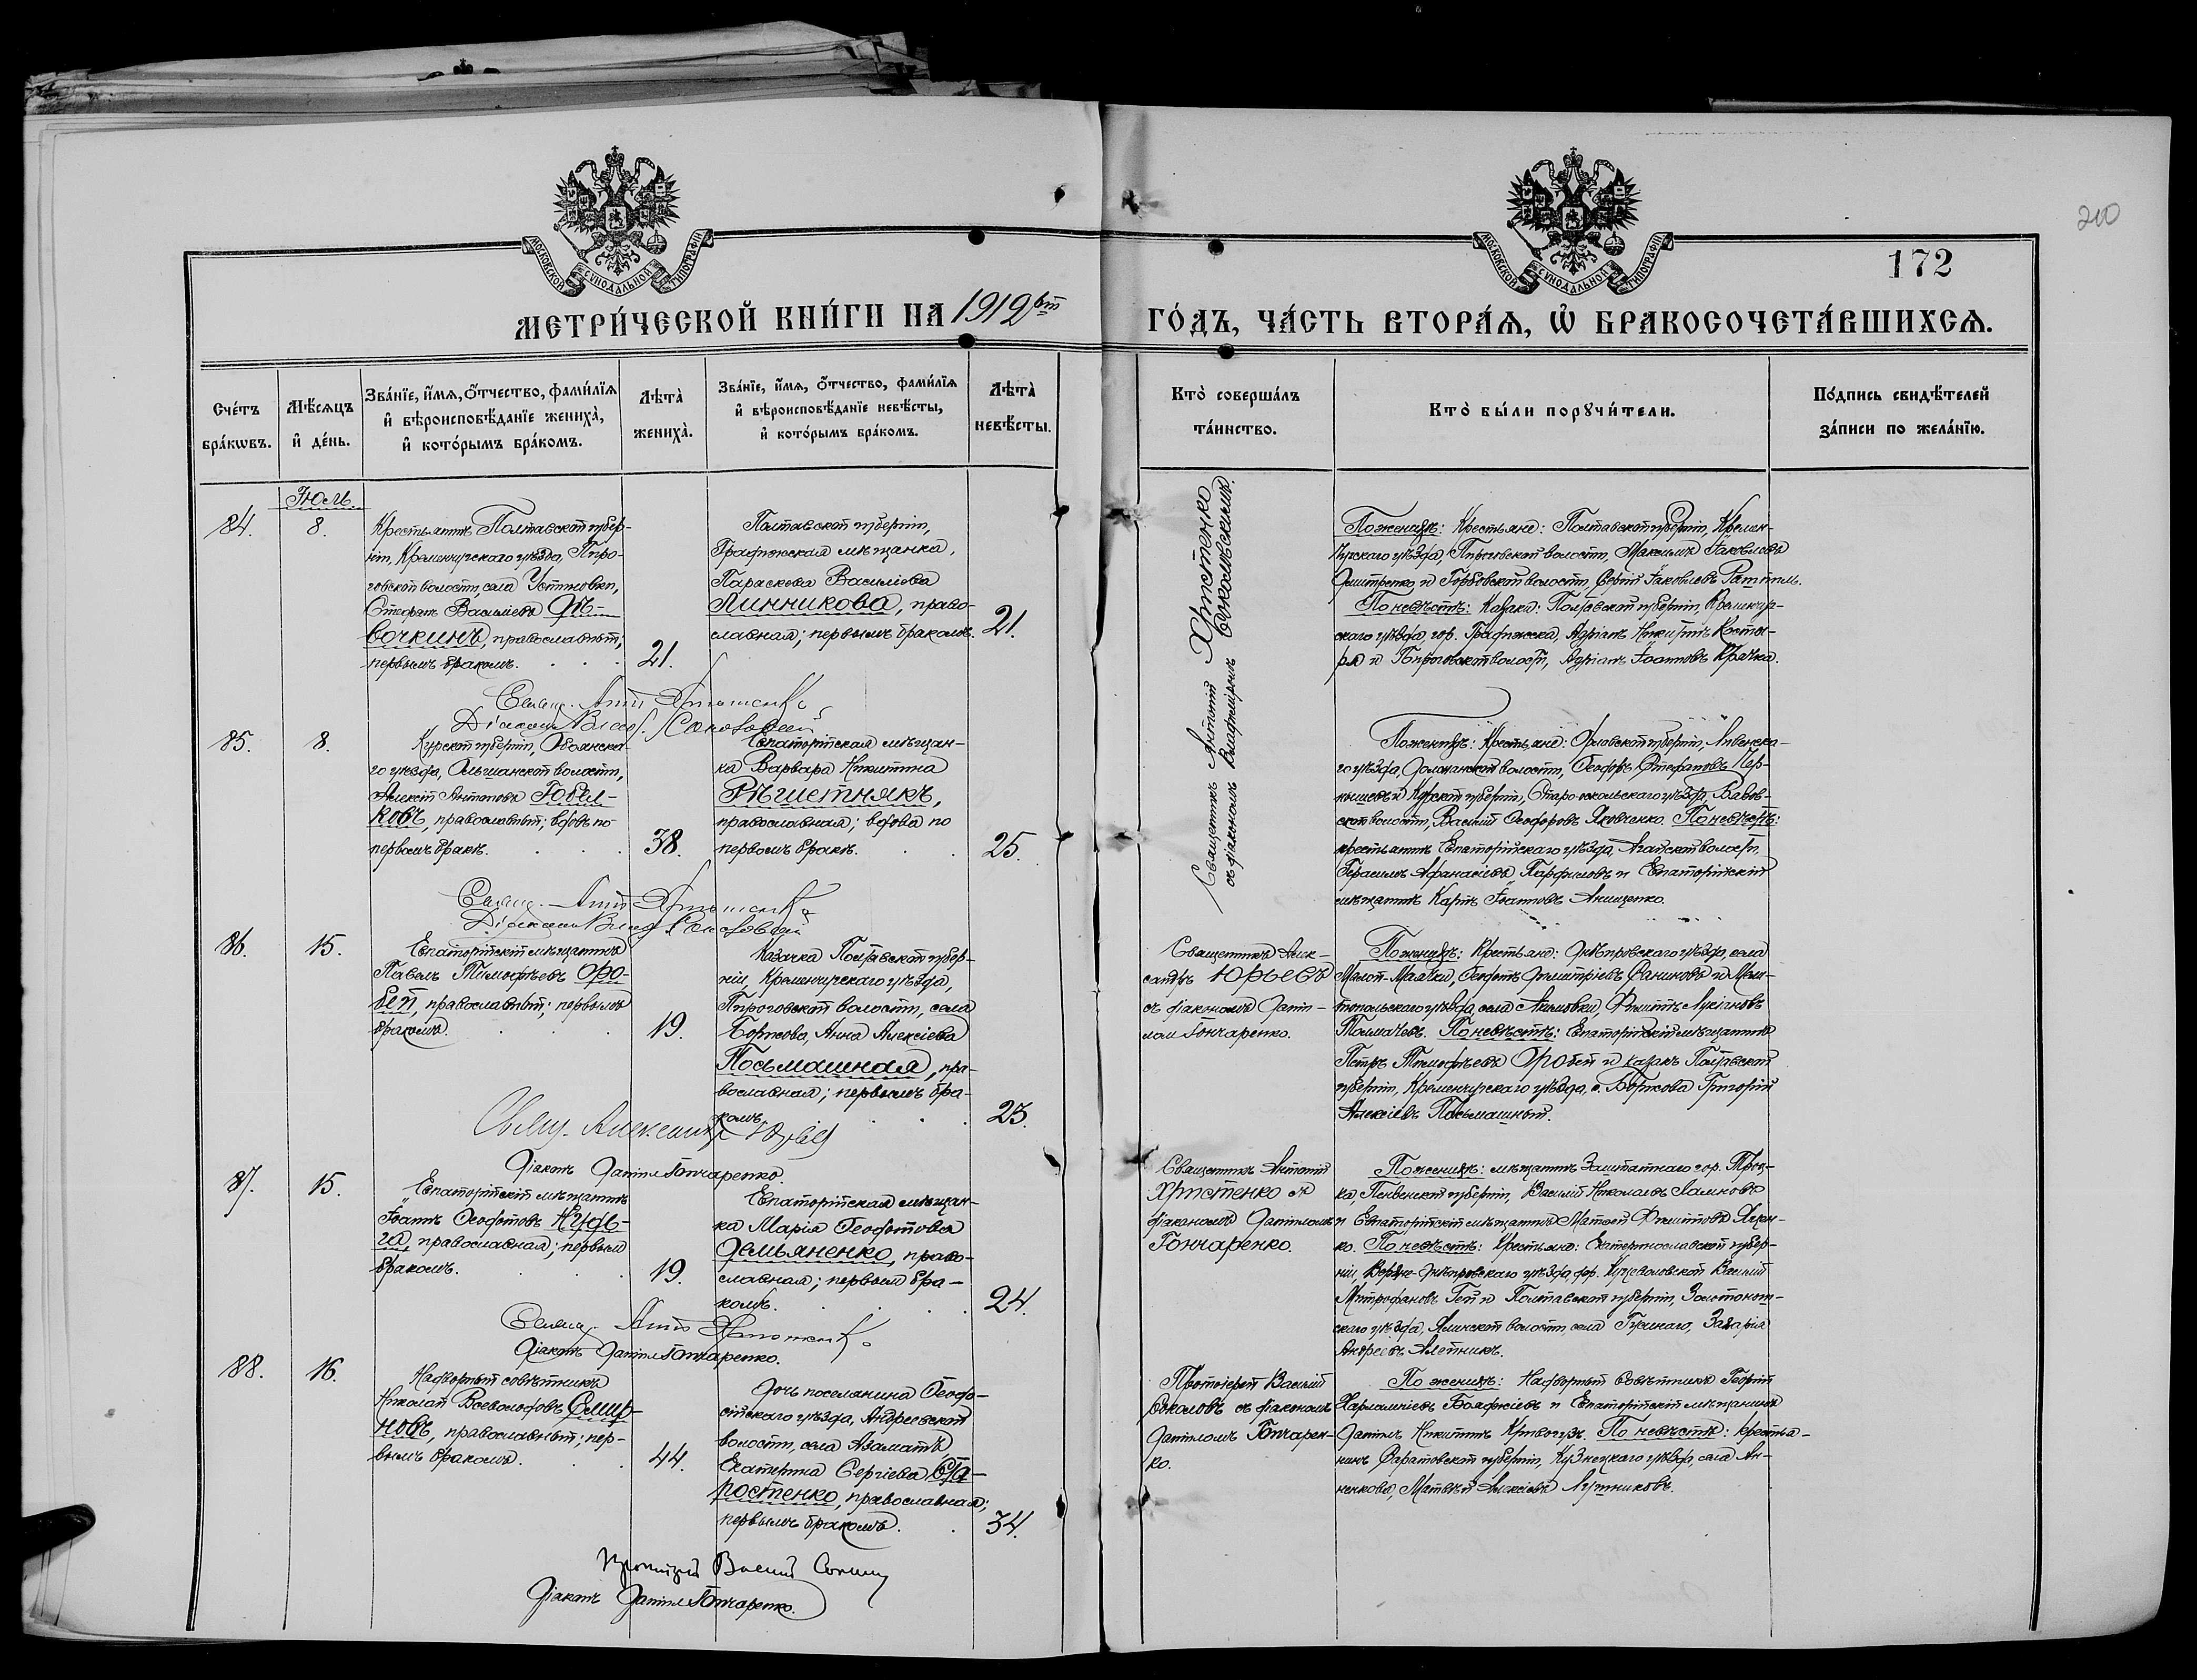 210
172
МОСКОВСКОЙ СѴНОДАЛЬНОЙ ТИПОГРАФІИ
МОСКОВСКОЙ СѴНОДАЛЬНОЙ ТИПОГРАФІИ
МЕТРИ́ЧЕСКОЙ КНИ́ГИ НА 1912 ГО́ДЪ, ЧА́СТЬ ВТОРА́Ѧ, Ѡ҆ БРАКОСОЧЕТА́ВШИХСѦ.
Сче́тъ бра́кѡвъ.
Мѣ́сѧцъ и҆ де́нь.
Зва́нїе, и҆́мѧ, ѻ҆́тчество, фами́лїѧ
и҆ вѣроисповѣ́данїе жениха̀,
и҆ кото́рымъ бра́комъ.
Лѣта̀ жениха̀.
Зва́нїе, и҆́мѧ, ѻ҆́тчество, фами́лїѧ
и҆ вѣроисповѣ́данїе невѣ́сты,
и҆ кото́рымъ бра́комъ.
Лѣта̀ невѣ́сты.
Кто̀ соверша́лъ та́инство.
Кто̀ бы́ли порꙋчи́тели.
По́дпись свидѣ́телей за́писи по жела́нїю.
Іюль.
84.
8.
Крестьянинъ Полтавской губер-
ніи, Кременчугскаго уѣзда, Пиро-
говской волости, села Устимовки,
Стефанъ Василіевъ Дѣ-
вочкинъ, православный;
первымъ бракомъ.
21.
Полтавской губерніи,
Градижская мѣщанка,
Параскева Василіева
Линникова, право-
славная; первымъ бракомъ.
21.
Священникъ Антоній Христенко
съ діакономъ Владиміромъ Соколовскимъ.
По женихѣ: Крестьяне: Полтавской губерніи, Кремен-
чугскаго уѣзда, Пироговской волости, Максимъ Іаковлевъ
Дмитренко и Горбовской волости, Сергій Іаковлевъ
По невѣстѣ: Казаки: Полтавской губерніи, Кременчуг-
скаго уѣзда, гор. Градижска, Адріанъ Никитинъ Косты-
ря и Пироговской волости, Адріанъ Іоанновъ Крячка.
Свящ. Антоній Христенко
Діаконъ Влад. Соколовскій
85.
8.
Курской губерніи, Обоянска-
го уѣзда, Ольшанской волости,
Алексій Антоновъ
ковъ, православный; вдовъ по
первомъ бракѣ.
38.
Евпаторійская мѣщан-
ка Варвара Никитина
Рѣшетнякъ,
православная; вдова по
первомъ бракѣ.
25.
По женихѣ: Крестьяне: Орловской губерніи, Ливенска-
го уѣзда, волости, Ѳеодоръ Стефановъ Чер-
нышевъ и Курской губерніи, Старо-оскольскаго уѣзда,
ской волости, Василій Ѳеодоровъ Яковченко. По невѣстѣ:
крестьянинъ Евпаторійскаго уѣзда, Агайской волости,
Герасимъ Афанасіевъ Парфиловъ и Евпаторійскій
мѣщанинъ Карпъ Іоанновъ Анищенко.
Свящ. Антоній Христенко
Діаконъ Влад. Соколовскій
86.
15.
Евпаторійскій мѣщанинъ
Павелъ Тимоѳѣевъ Оро-
бей, православный; первымъ
бракомъ.
19.
Козачка Полтавской губер-
ніи, Кременчугскаго уѣзда,
Пироговской волости, села
Боркова, Анна Алексіева
Посьмашная, пра-
вославная; первымъ бра-
комъ.
23.
Священникъ Алек-
сандръ Юрьевъ
съ діакономъ Дані-
ломъ Гончаренко.
По женихѣ: Крестьяне: Днѣпровскаго уѣзда, села
Малой-Маячки, Ѳеодотъ Дмитріевъ Санниковъ и Мели-
топольскаго уѣзда, села Акимовки, Филиппъ Лукіановъ
Толмачевъ. По невѣстѣ: Евпаторійскій мѣщанинъ
Петръ Тимоѳѣевъ Оробей и казакъ Полтавской
губерніи, Кременчугскаго уѣзда, с. Боркова Григорій
Алексіевъ Посьмашный.
Свящ. Александръ Юрьев
Діаконъ Даніилъ Гончаренко.
87.
15.
Евпаторійскій мѣщанинъ
Іоаннъ Ѳеодотовъ Нудь-
га, православная; первымъ
бракомъ.
19.
Евпаторійская мѣщан-
ка Марія Ѳеодотова
Демьяненко, право-
славная; первымъ бра-
комъ.
24.
Священникъ Антоній
Христенко съ
діакономъ Даніиломъ
Гончаренко.
По женихѣ: мѣщанинъ Заштатнаго гор. Троиц-
ка, Пензенской губерніи, Василій Николаевъ
и Евпаторійскій мѣщанинъ Матѳей Филипповъ Яцен-
ко. По невѣстѣ: Крестьяне: Екатеринославской губер-
ніи, Верхне-Днѣпровскаго уѣзда, дер. Василій
Митрофановъ Гей и Полтавской губерніи, Золотонош-
скаго уѣзда, волости, села Захарія
Андреевъ Алейникъ.
Свящ. Антоній Христенко
Діаконъ Даніилъ Гончаренко.
88.
16.
Надворный совѣтникъ
Николай Всеволодовъ Смир-
новъ, православный; пер-
вымъ бракомъ.
44.
Дочь поселянина Ѳеодо-
сійскаго уѣзда, Андреевской
волости, села Азаматъ
Екатерина Сергіева Ста-
ростенко, православная;
первымъ бракомъ.
34.
Протоіерей Василій
Соколовъ съ діакономъ
Даніиломъ Гончарен-
ко.
По женихѣ: Надворный Совѣтникъ Георгій
Харлампіевъ Бояджіевъ и Евпаторійскій мѣщанинъ
Даніилъ Никитинъ Кривогузъ. По невѣстѣ: крестья-
нинъ Саратовской губерніи, Кузнецкаго уѣзда, села Ан-
ненкова, Матвѣй Алексіевъ Лутниковъ.
Протоіерей Василій
Діаконъ Даніилъ Гончаренко.